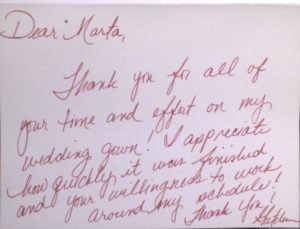 Dear Marta,
Thank you for all of
your time and effort on my
wedding gown! I appreciate
how quickly it was finished
and your willingness to work
around my schedule!
Thank you!